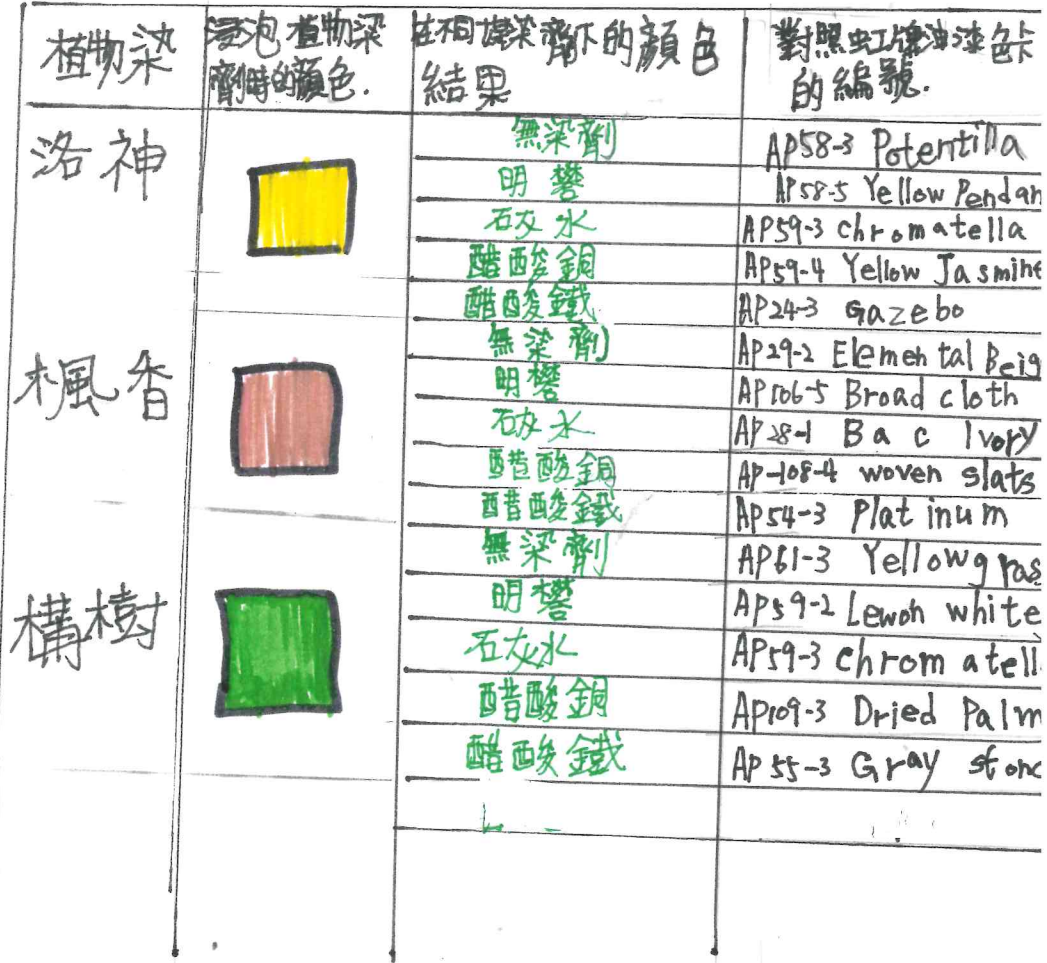 植物染
浸泡植物染
劑時的顏色.
在不同媒染齊下的顏色
結果
對照虹牌油漆色卡
的編號.
洛神
無染劑
AP58-3 Potentilla
明礬
AP58-5 Yellow Pendan
石灰水
AP59-3 chromatella
醋酸銅
AP59-4 Yellow Jasmine
醋酸鐵
AP24-3 Gazebo
楓香
無染劑
AP29-2 Elemental Beig
明礬
AP106-5 Broad cloth
石灰水
AP28-1 Bac Ivory
醋酸銅
AP-108-4 woven slats
醋酸鐵
AP54-3 Platinum
構樹
無染劑
AP61-3 Yellowgras
明礬
AP59-2 Lewon white
石灰水
AP59-3 chromatell
醋酸銅
AP109-3 Dried Palm
醋酸鐵
AP55-3 Gray stone